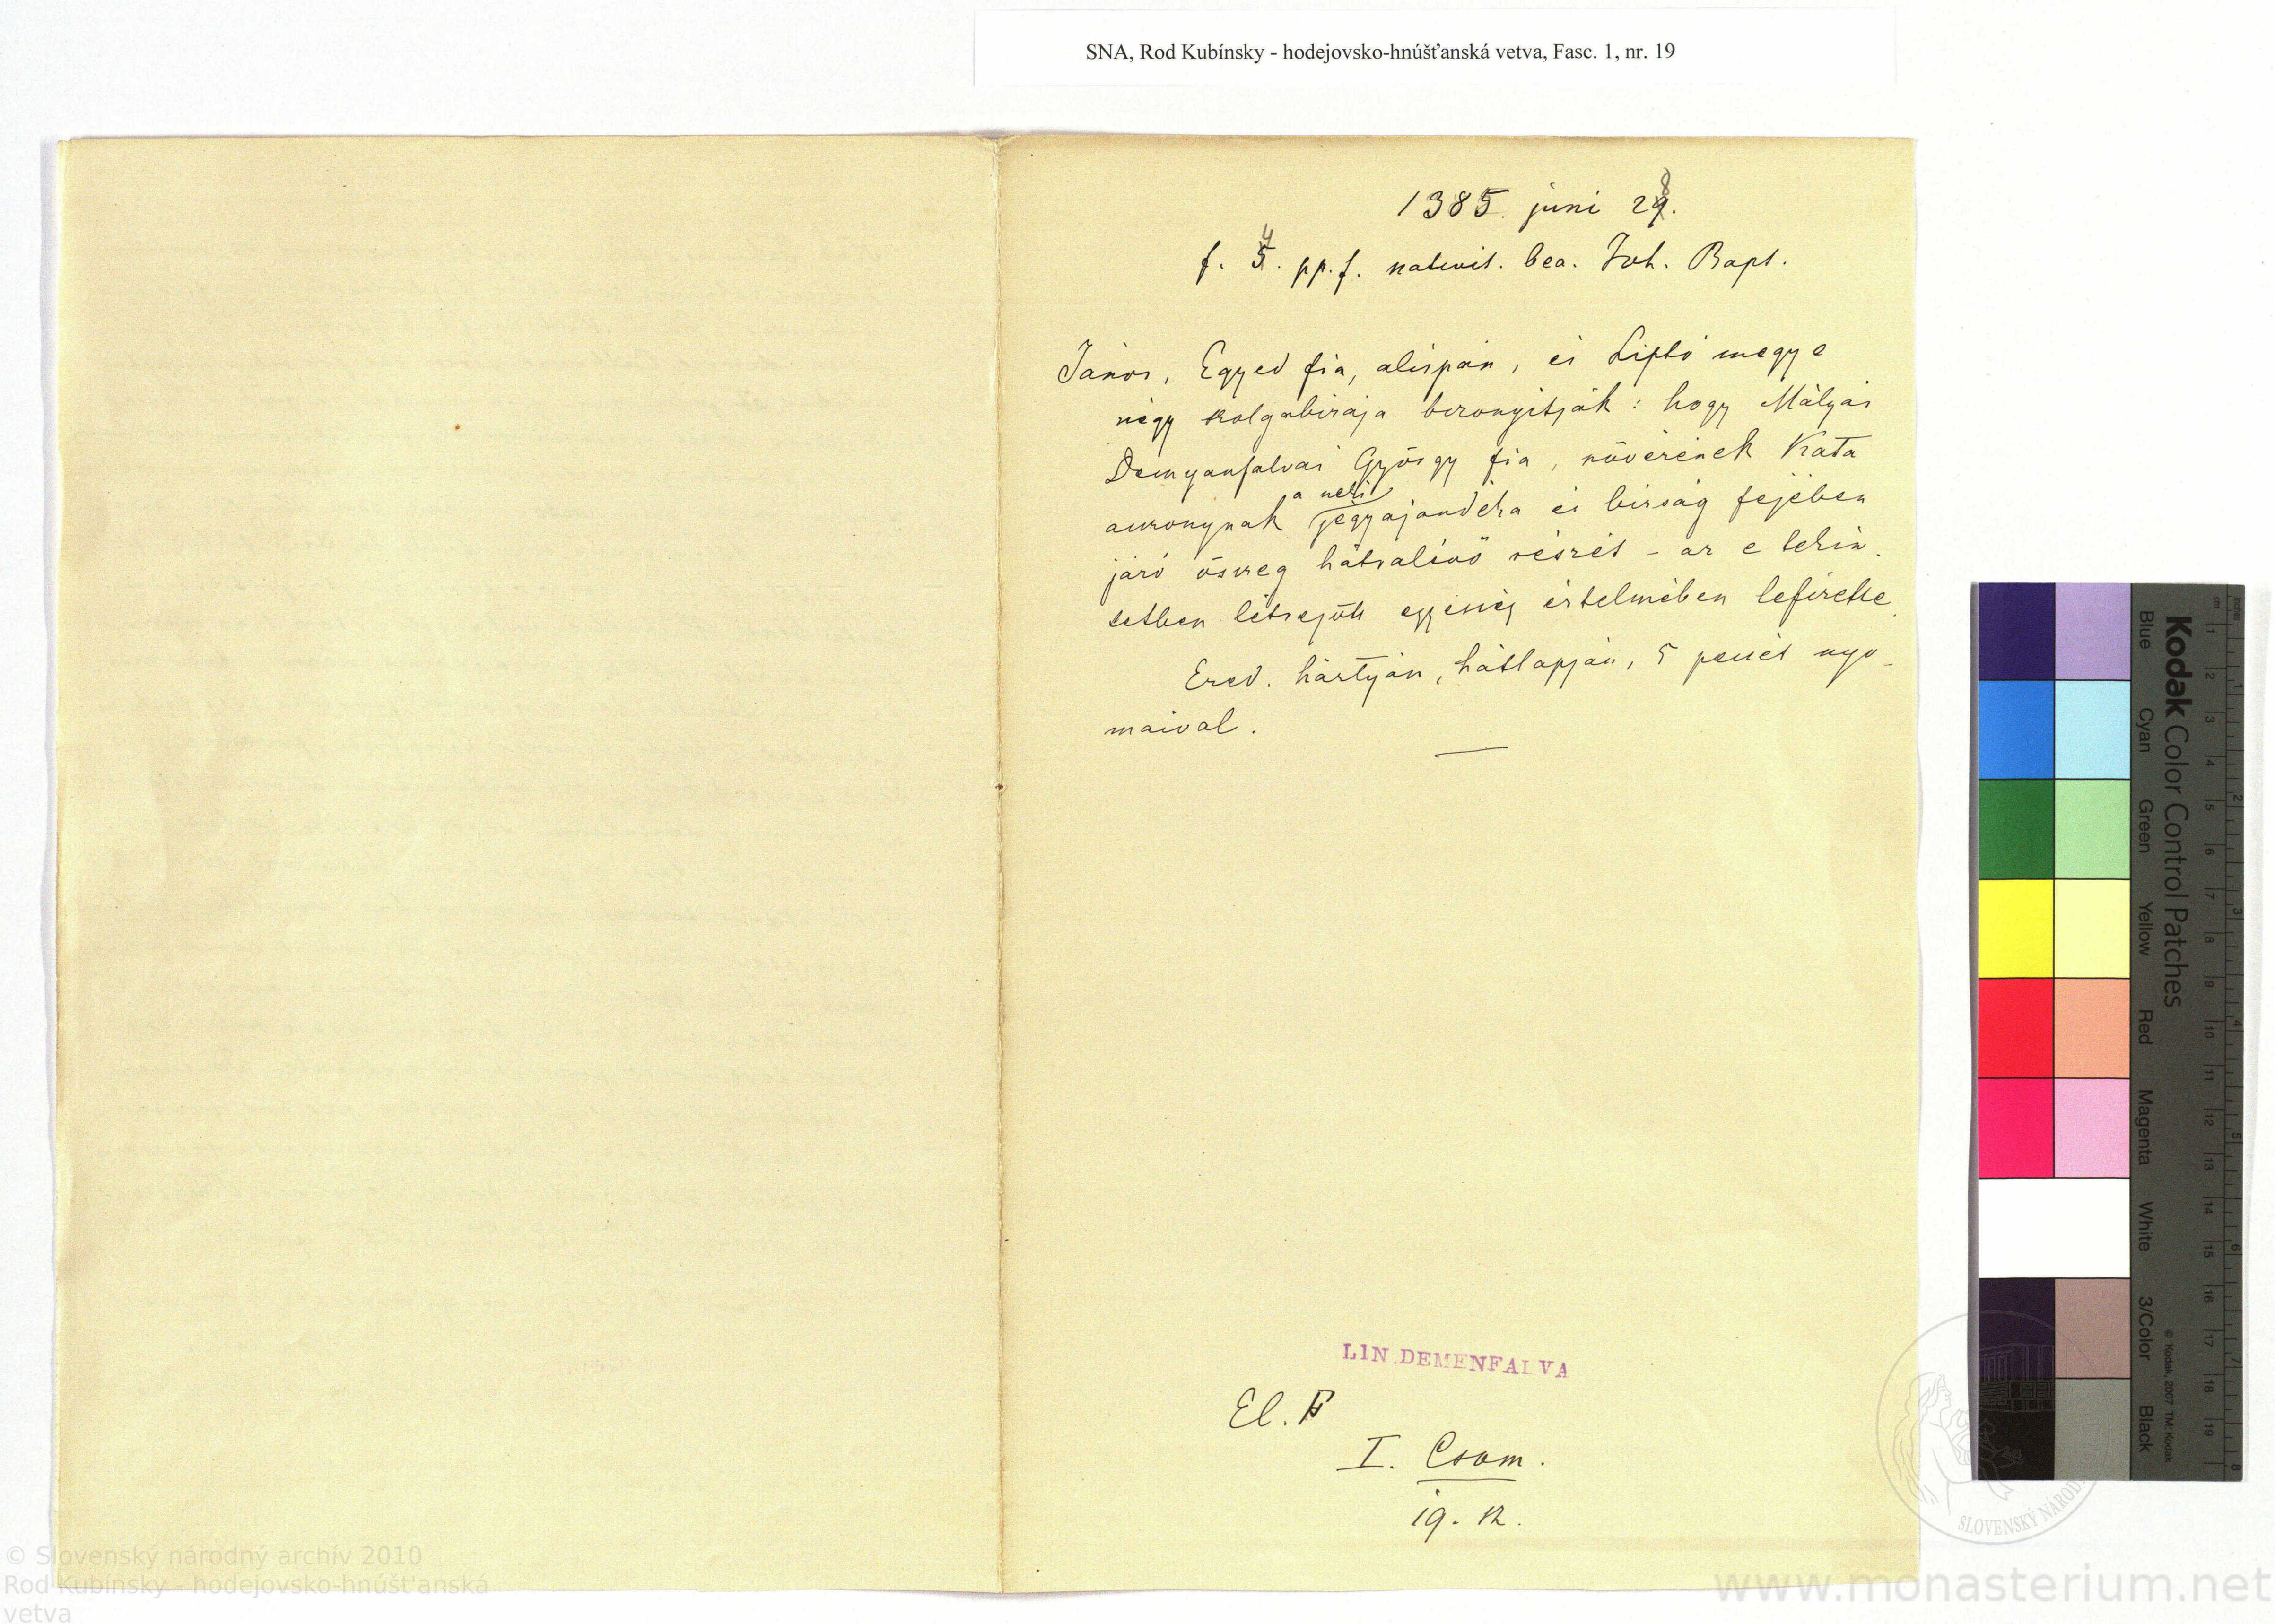 SNA, Rod Kubínsky - hodejovsko-hnúšťanská vetva, Fasc. 1, nr. 19
1385. juni 28.
f. 4. pp. f. nativit. bea. Joh. Bapt.
János, Egyed fia, alispán, és Liptó megye
négy szolgabirája bizonyitják: hogy Mátyás
Demyanfalvai György fia, nővérének Kata
asszonynak a neki jegyajandéka és birság fejében
járó összeg hátralévő részét - az e tekin-
tetben létrejött egyesség értelmében lefizette.
Ered. hártyán, hátlapján, 5 pecsét nyo-
maival.
LIN. DEMENFALVA
El. F
I. Csom.
19. sz.
Kodak Color Control Patches
Blue Cyan Green Yellow Red Magenta White 3/Color Black
© Kodak, 2007 TM: Kodak
SLOVENSKÝ NÁROD
© Slovenský národný archív 2010
Rod Kubínsky - hodejovsko-hnúšťanská
vetva
www.monasterium.net